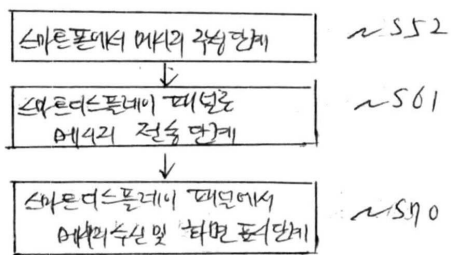 스마트폰에서 메시지 작성 단계 ~S52
스마트디스플레이 패널로 ~S61
메시지 전송 단계
스마트디스플레이 패널에서
메시지 수신 및 화면 표시 단계 ~S70